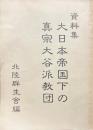 資料集
大日本帝国下の
真宗大谷派教団
北陸群生舎編